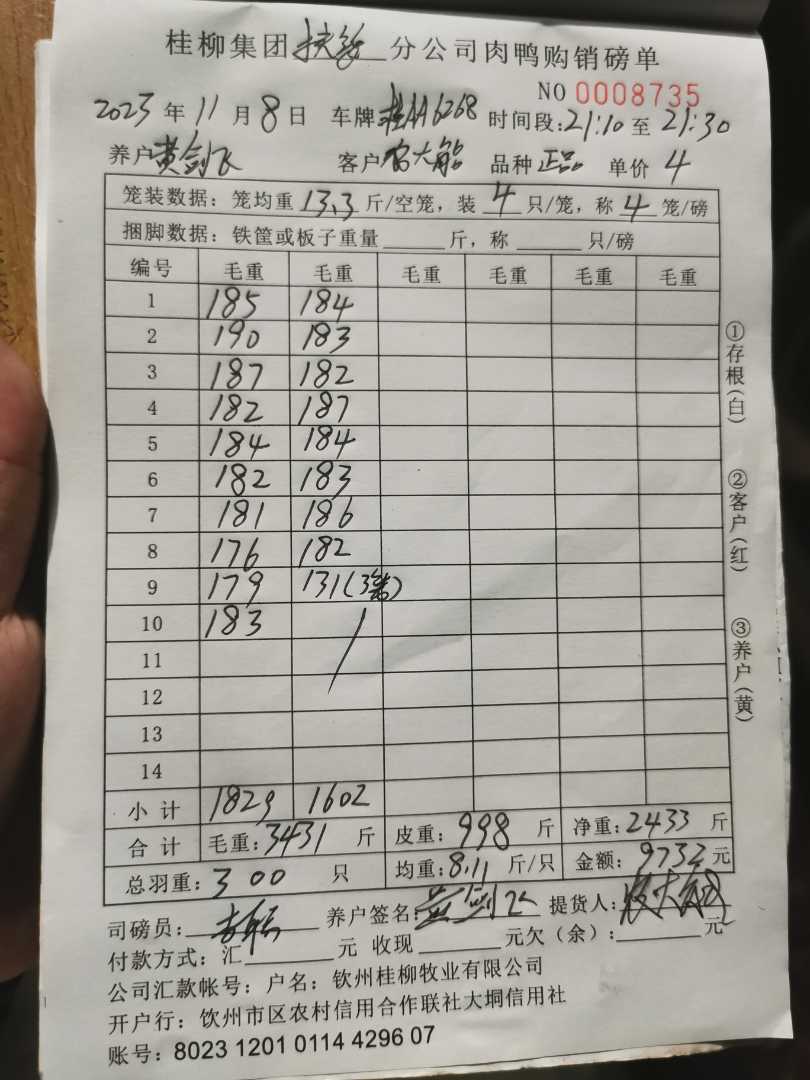 桂柳集团扶绥分公司肉鸭购销磅单
NO 0008735
2023年11月8日 车牌桂AA6268 时间段:21:10至21:30
养户黄剑飞 客户农大能 品种正品 单价4
笼装数据：笼均重13.3斤/空笼，装4只/笼，称4笼/磅
捆脚数据：铁筐或板子重量 斤，称 只/磅
编号 毛重 毛重 毛重 毛重 毛重 毛重
1 185 184
2 190 183
3 187 182
4 182 187
5 184 184
6 182 183
7 181 186
8 176 182
9 179 131(3笼)
10 183 /
11
12
13
14
小计 1829 1602
合计 毛重:3431斤 皮重:998斤 净重:2433斤
总羽重:300只 均重:8.11斤/只 金额:9732元
司磅员: 养户签名:黄剑飞 提货人:农大能
付款方式：汇 元 收现 元欠（余）: 元
公司汇款帐号：户名：钦州桂柳牧业有限公司
开户行：钦州市区农村信用合作联社大垌信用社
账号：8023 1201 0114 4296 07
①存根(白)
②客户(红)
③养户(黄)